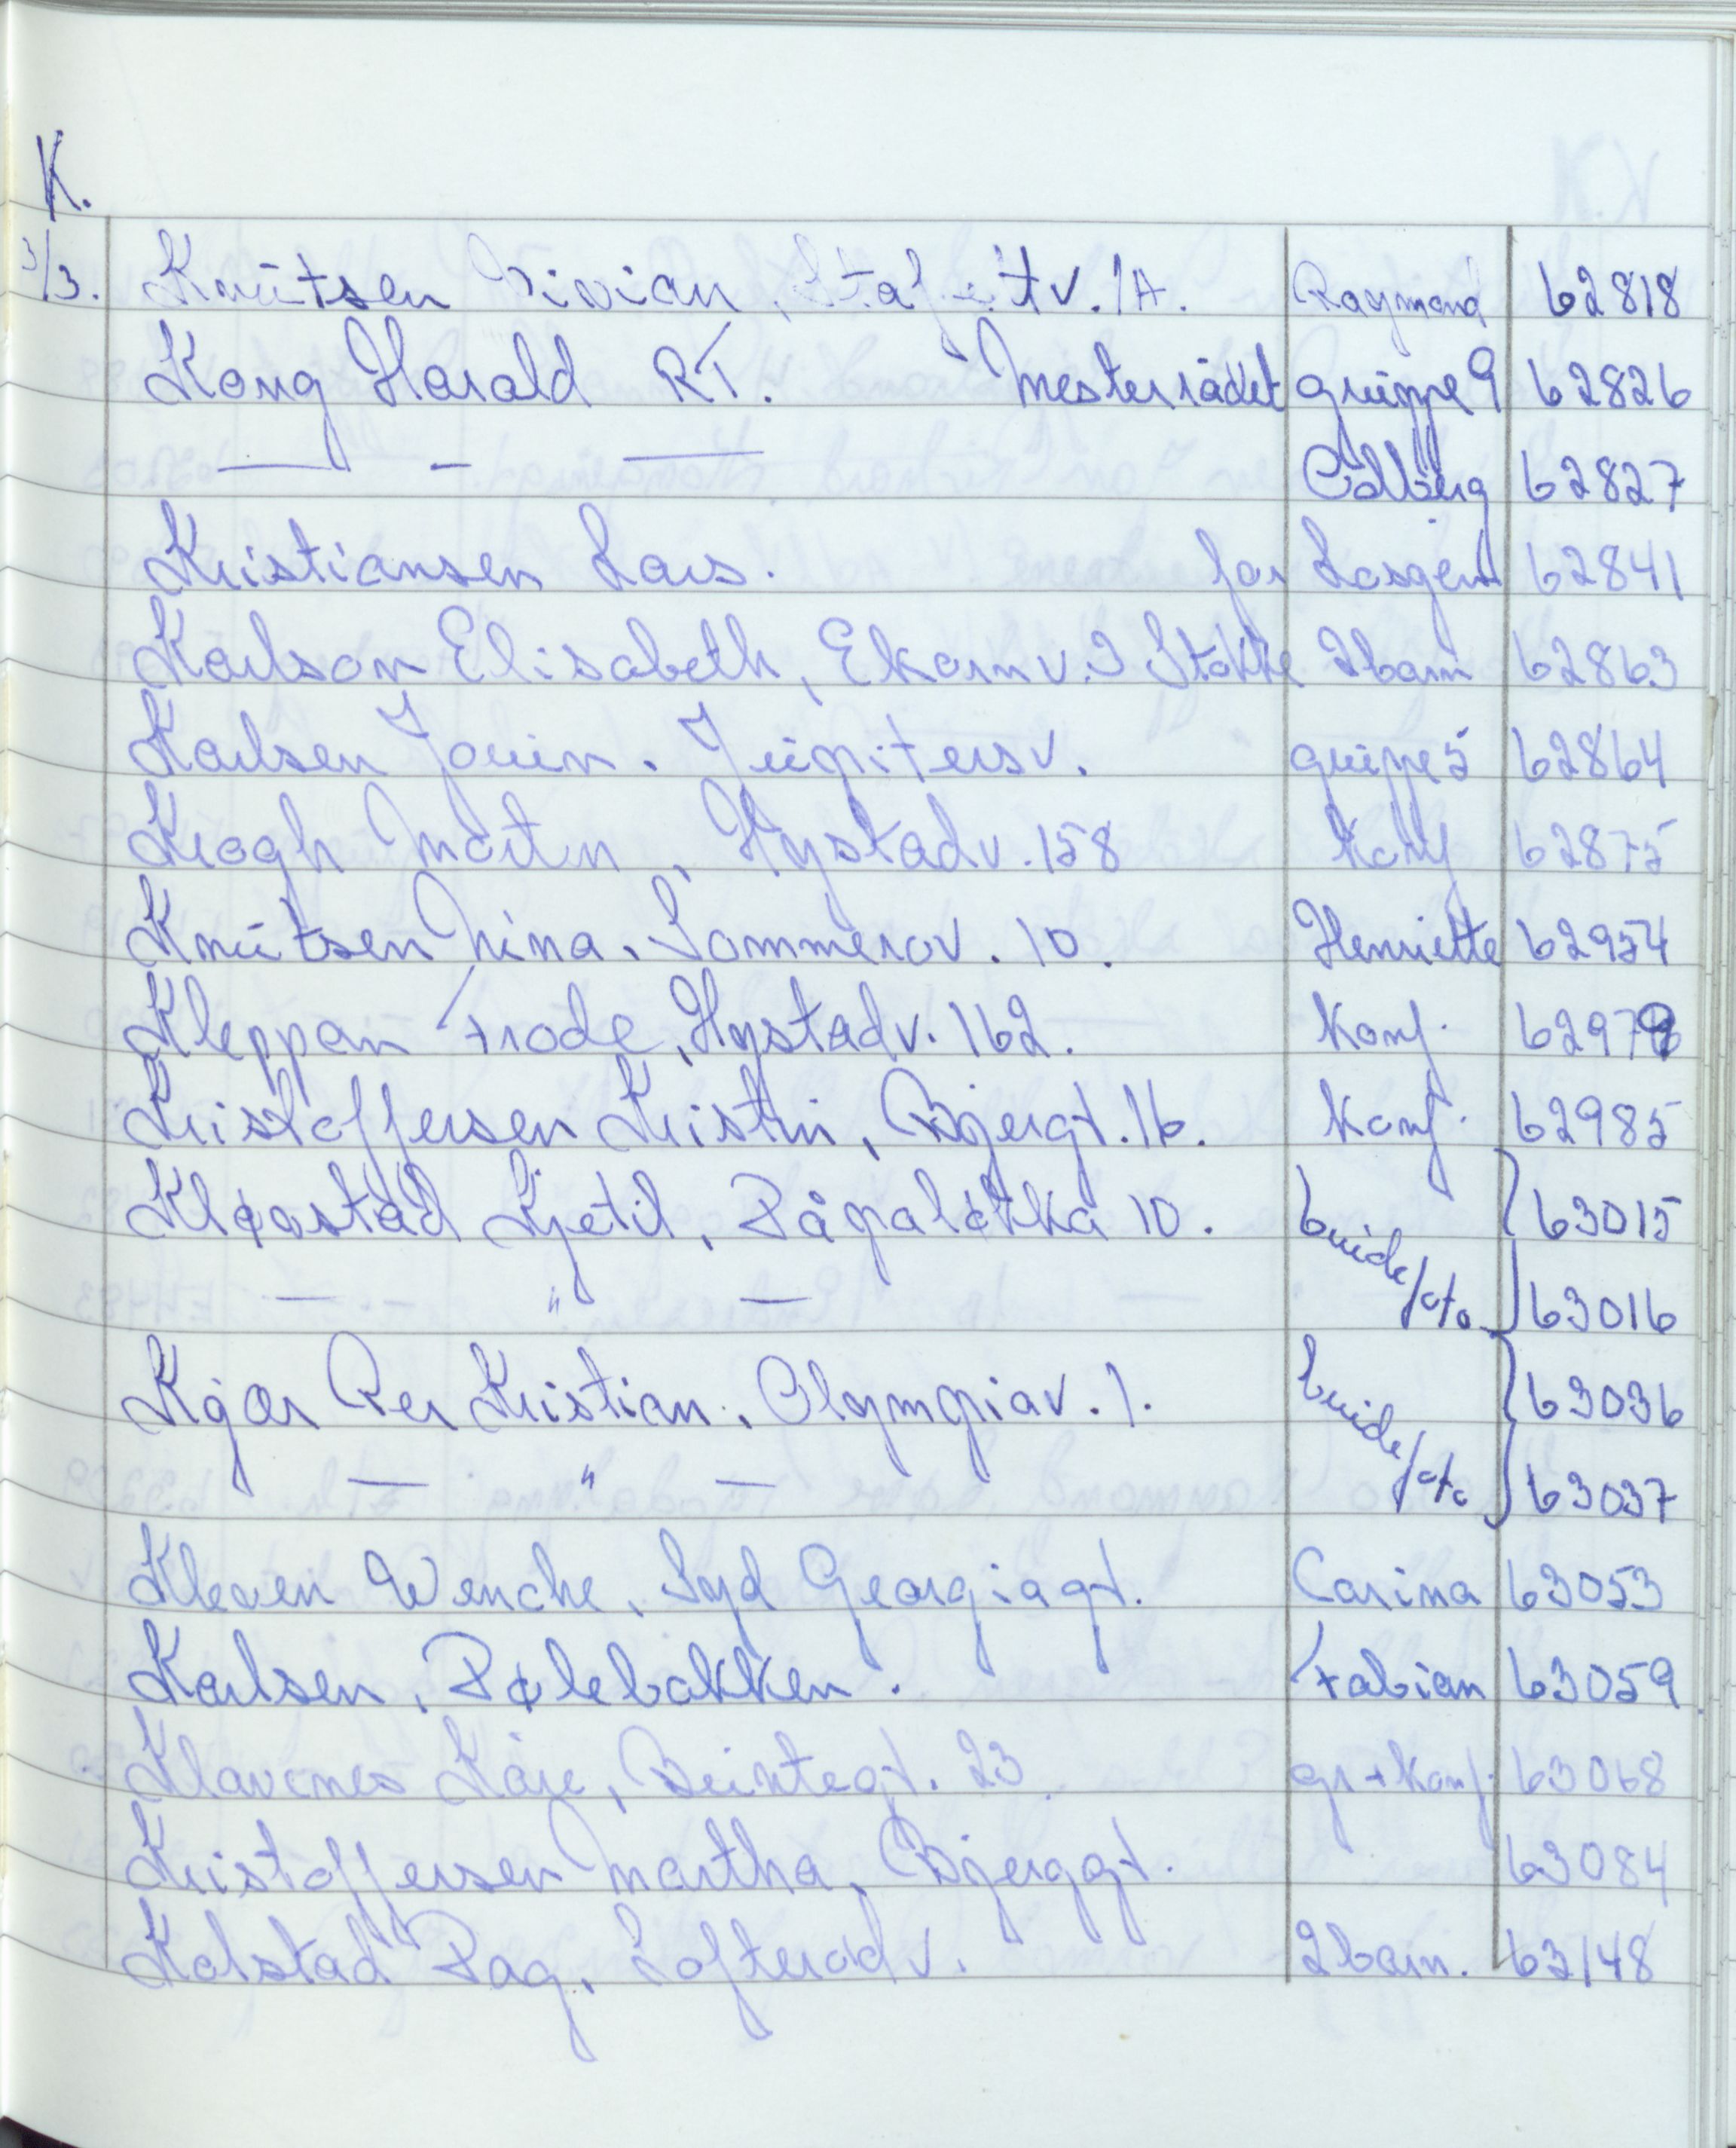 K.
3/3. Knutsen Vivian, Stafettv. 1A. Raymond 62818
Kong Harald RT. Mesterrådet gruppe 9 62826
— - — Edberg 62827
Kristiansen Lars. for 62841
Karlson Elisabeth, Ekornv. 2 Stokke 2barn 62863
Karlsen Jouin. Jupitersv. gruppe 5 62864
Krogh Martin, Hystadv. 158 Konf 62875
Knutsen Nina, Sommerov. 10. Henriette 62954
Kleppan Frode, Hystadv. 162. Konf. 62979
Kristoffersen Kristin, Bjergt. 16. Konf. 62985
Kløvstad Kjetil, Dågaløkka 10. brude/oto 63015
— " — 63016
Kjær Per Kristian, Olympiav. 1. brude/oto 63036
— " — 63037
Kleven Wenche, Syd Georgiagt. Carina 63053
Karlsen, Dølebakken. Fabian 63059
Klavenes Kåre, Buntegt. 23 gr+konf. 63068
Kristoffersen Martha, Bjerggt. 63084
Kolstad Dag, Lofterødv. 2barn. 63148